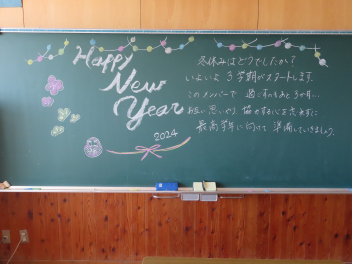 Happy
New
Year
2024
冬休みはどうでしたか？
いよいよ3学期がスタートします。
このメンバーで過ごすのもあと3か月…
お互い思いやり、協力する心を忘れずに
最高学年に向けて準備していきましょう。